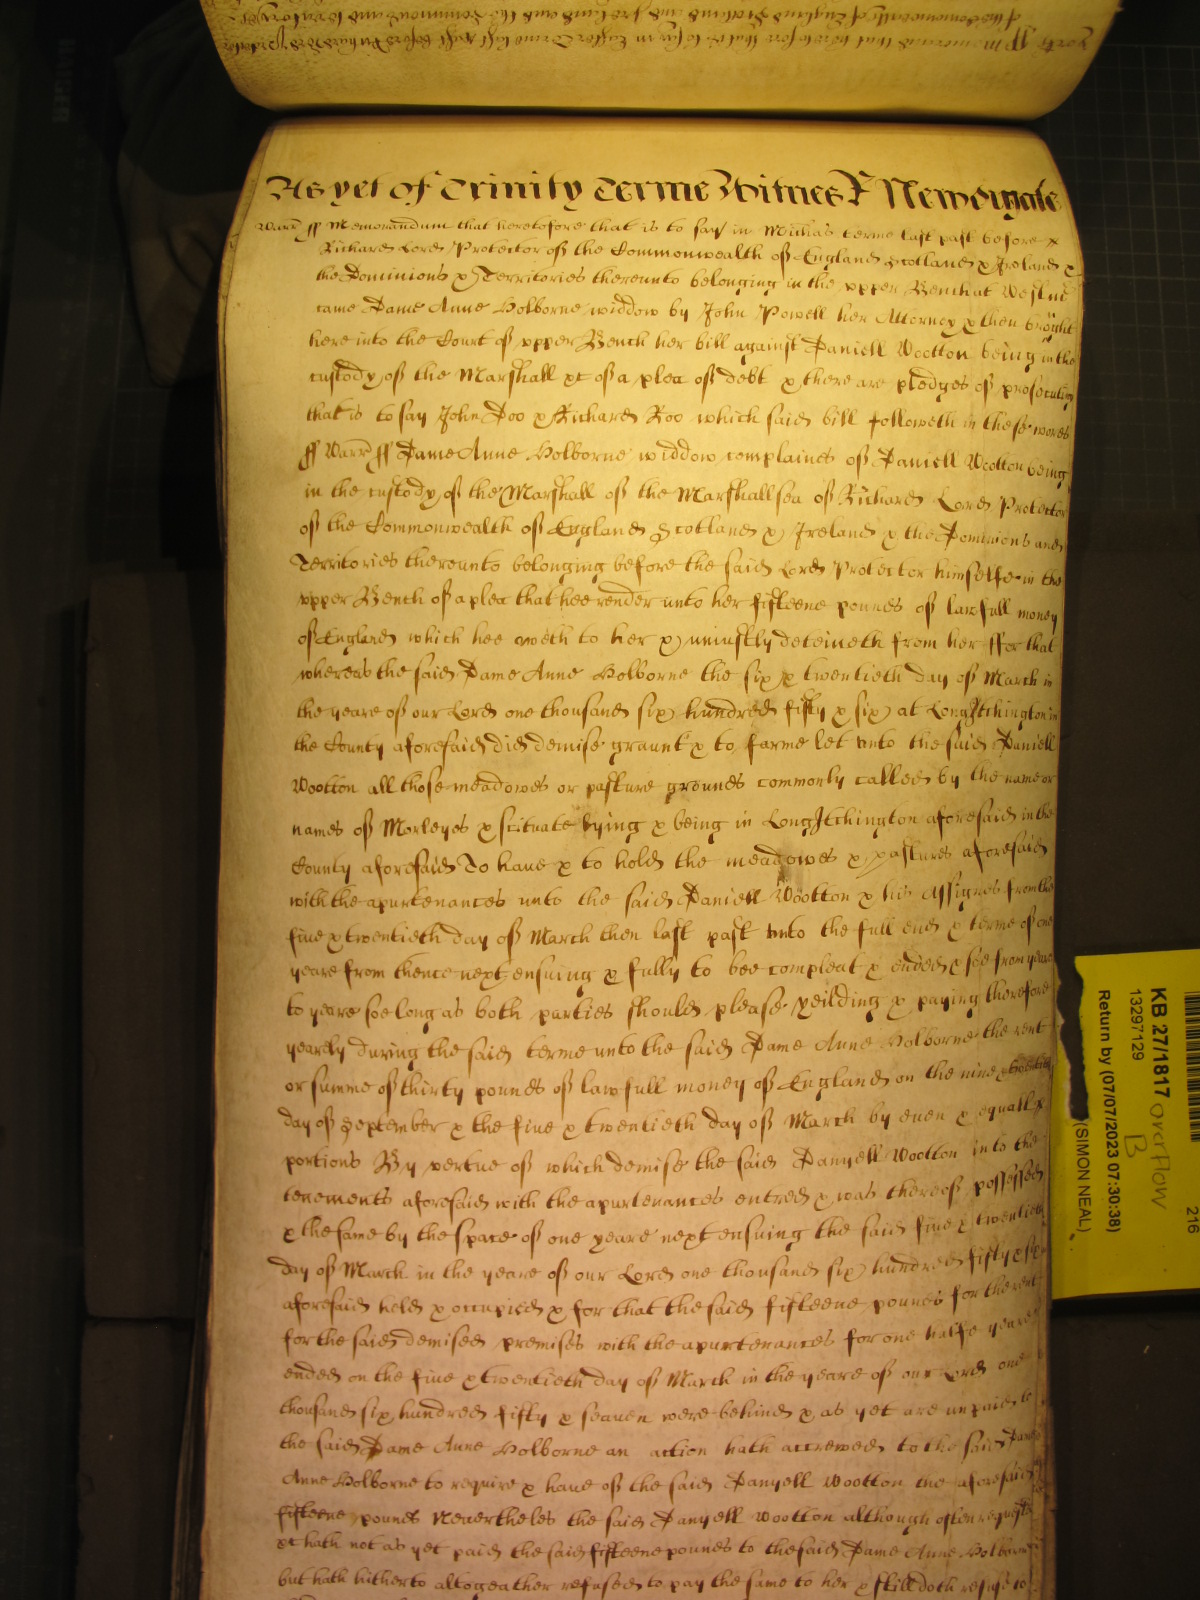 As yet of Trinity Terme Witnes R Newdigate
Warr ss Memorandum that heretofore that is to say in Michas terme last past before
Richard Lord Protector of the Commonwealth of England Scotland & Ireland &
the Dominions & Territories thereunto belonging in the vpper Bench at Westmr
came Dame Anne Holborne widdow by John Powell her Attorney & then brought
here into the Court of vpper Bench her bill against Daniell Wootton being in the
custody of the Marshall &c of a plea of debt & there are pledges of prosecuting
that is to say John Doo & Richard Roo which said bill followeth in these words
ss Warr ss Dame Anne Holborne widdow complaines of Daniell Wootton being
in the custody of the Marshall of the Marshallsea of Richard Lord Protector
of the Commonwealth of England Scotland & Ireland & the Dominions and
Territories thereunto belonging before the said Lord Protector himselfe in the
vpper Bench of a plea that hee render unto her fifteene pounds of lawfull money
of England which hee oweth to her & uniustly deteineth from her ffor that
whereas the said Dame Anne Holborne the six & twentieth day of March in
the yeare of our Lord one thousand six hundred fifty & six at Long Itchington in
the County aforesaid did demise graunt & to farme let vnto the said Daniell
Wootton all those meadowes or pasture grounds commonly called by the name or
names of Morleyes & scituate lying & being in Long Itchington aforesaid in the
County aforesaid To haue & to hold the meadowes & pastures aforesaid
with the apurtenances unto the said Daniell Wootton & his Assignes from the
fiue & twentieth day of March then last past vnto the full end & terme of one
yeare from thence next ensuing & fully to bee compleat & ended & soe from yeare
to yeare soe long as both parties should please yeilding & paying therefore
yearely during the said terme unto the said Dame Anne Holborne the rent
or summe of thirty pounds of lawfull money of England on the nine & twentieth
day of September & the fiue & twentieth day of March by euen & equall
portions By vertue of which demise the said Danyell Wootton into the
tenements aforesaid with the apurtenances entred & was thereof possessed
& the same by the space of one yeare next ensuing the said fiue & twentieth
day of March in the yeare of our Lord one thousand six hundred fifty & six
aforesaid held & occupied & for that the said fifteene pounds for the rent
for the said demised premises with the apurtenances for one halfe yeare
ended on the fiue & twentieth day of March in the yeare of our Lord one
thousand six hundred fifty & seauen were behind & as yet are unpaid to
the said Dame Anne Holborne an action hath accrewed to the said Dame
Anne Holborne to require & haue of the said Danyell Wootton the aforesaid
fifteene pounds Neuertheles the said Danyell Wootton although often requested
&c hath not as yet paid the said fifteene pounds to the said Dame Anne Holborne
but hath hitherto altogeather refused to pay the same to her & still doth refuse to
KB 27/1817 overflow
13297129 B
Return by (07/07/2023 07:30:38)
(SIMON NEAL)
216